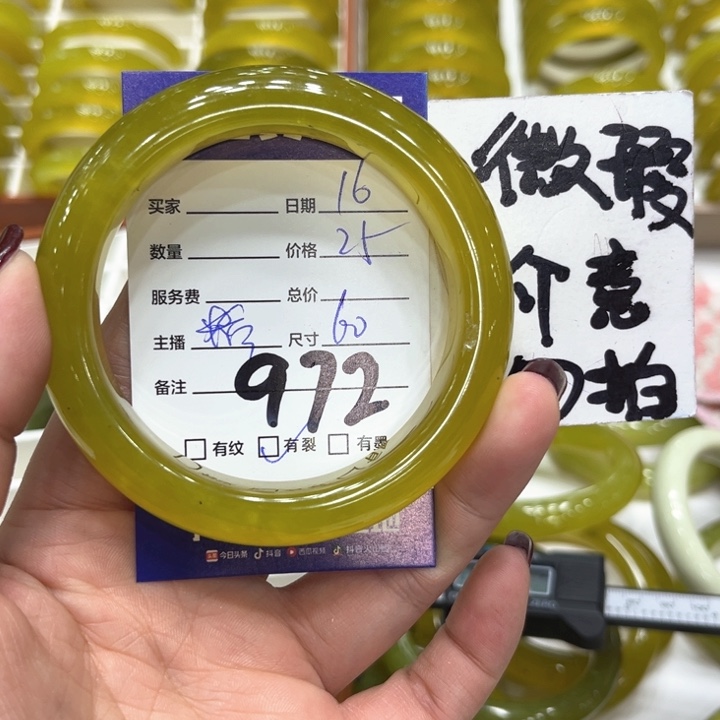 买家 日期 16
数量 价格 25
服务费 总价
主播 尺寸 60
备注 972
有纹 有裂 有墨
今日头条 抖音 西瓜视频 抖音火山
微瑕
介意
勿拍